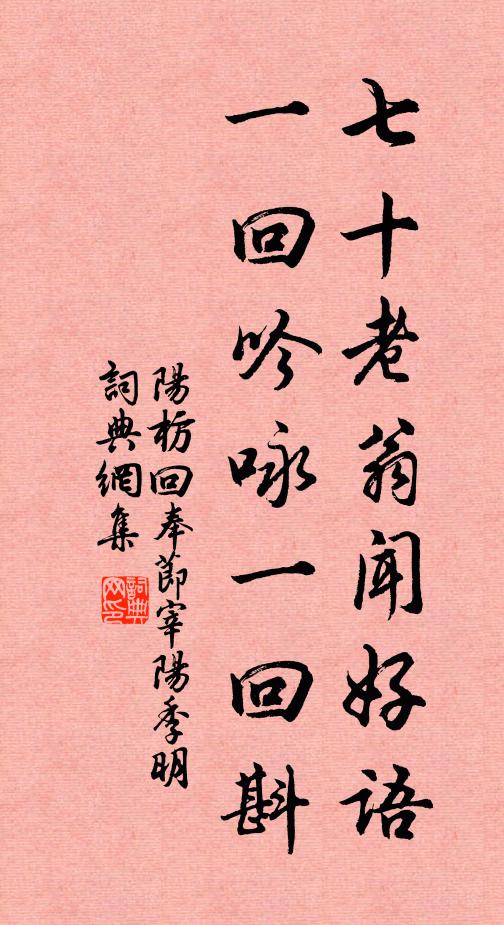 七十老翁闻好語
一回吟咏一回斟
陽枋回奉節宰陽季明
詞典網集
詞典网印